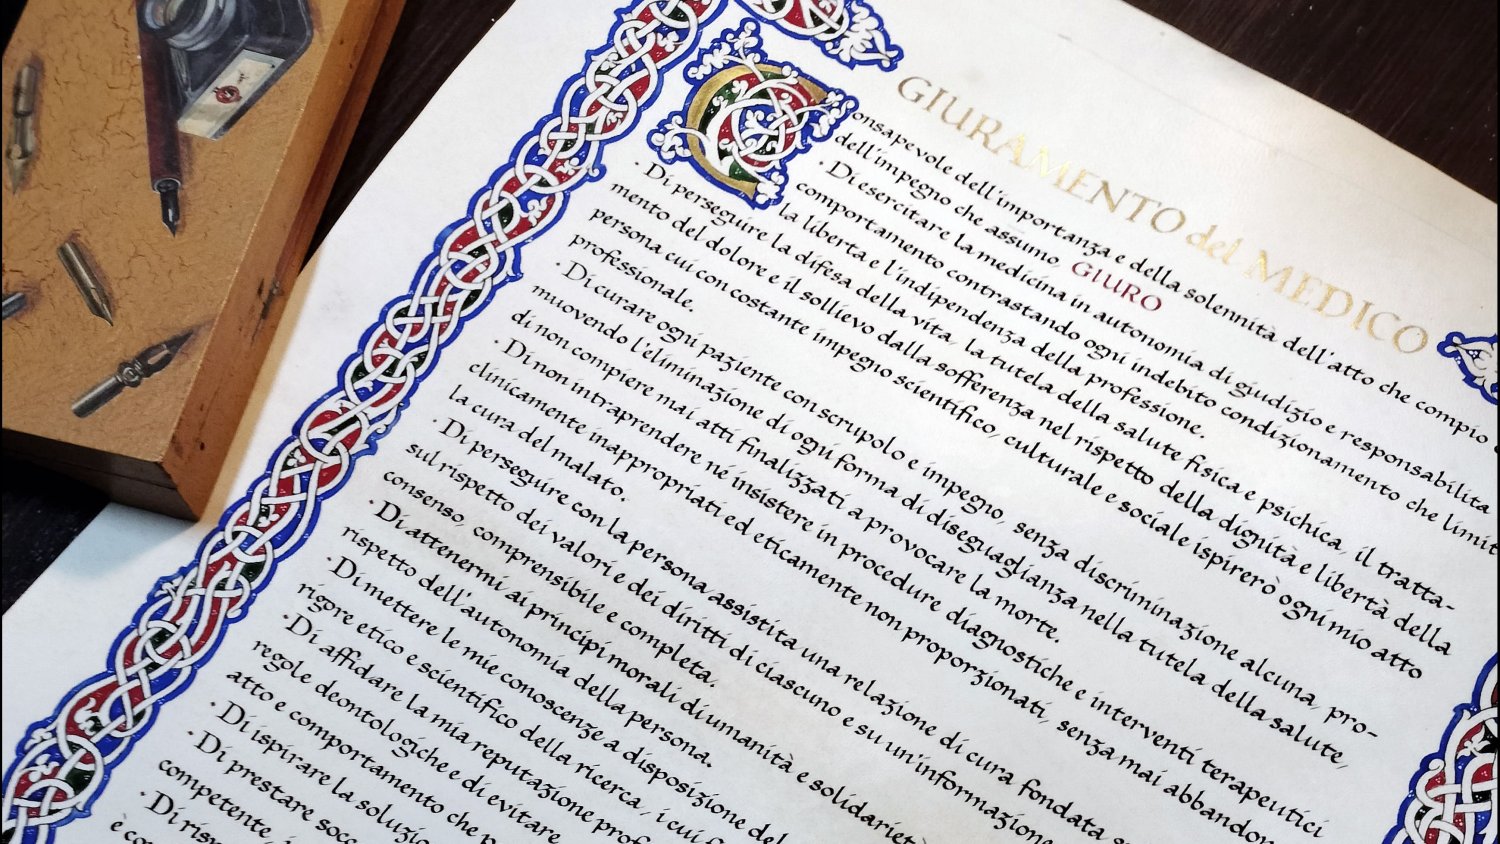 GIURAMENTO del MEDICO
Consapevole dell'importanza e della solennità dell'atto che compio
dell'impegno che assumo, GIURO
· Di esercitare la medicina in autonomia di giudizio e responsabilità
comportamento contrastando ogni indebito condizionamento che limit
la libertà e l'indipendenza della professione.
· Di perseguire la difesa della vita, la tutela della salute fisica e psichica, il tratta-
mento del dolore e il sollievo dalla sofferenza nel rispetto della dignità e libertà della
persona cui con costante impegno scientifico, culturale e sociale ispirerò ogni mio atto
professionale.
· Di curare ogni paziente con scrupolo e impegno, senza discriminazione alcuna, pro-
muovendo l'eliminazione di ogni forma di diseguaglianza nella tutela della salute,
di non compiere mai atti finalizzati a provocare la morte.
· Di non intraprendere né insistere in procedure diagnostiche e interventi terapeutici
clinicamente inappropriati ed eticamente non proporzionati, senza mai abbandon
la cura del malato.
· Di perseguire con la persona assistita una relazione di cura fondata
sul rispetto dei valori e dei diritti di ciascuno e su un'informazione
consenso, comprensibile e completa.
· Di attenermi ai principi morali di umanità e solidariet
rispetto dell'autonomia della persona.
· Di mettere le mie conoscenze a disposizione del
rigore etico e scientifico della ricerca, i cui f
· Di affidare la mia reputazione prof
regole deontologiche e di evitare
atto e comportamento che p
· Di ispirare la soluzio
· Di prestare socc
competente,
· Di risp
è co